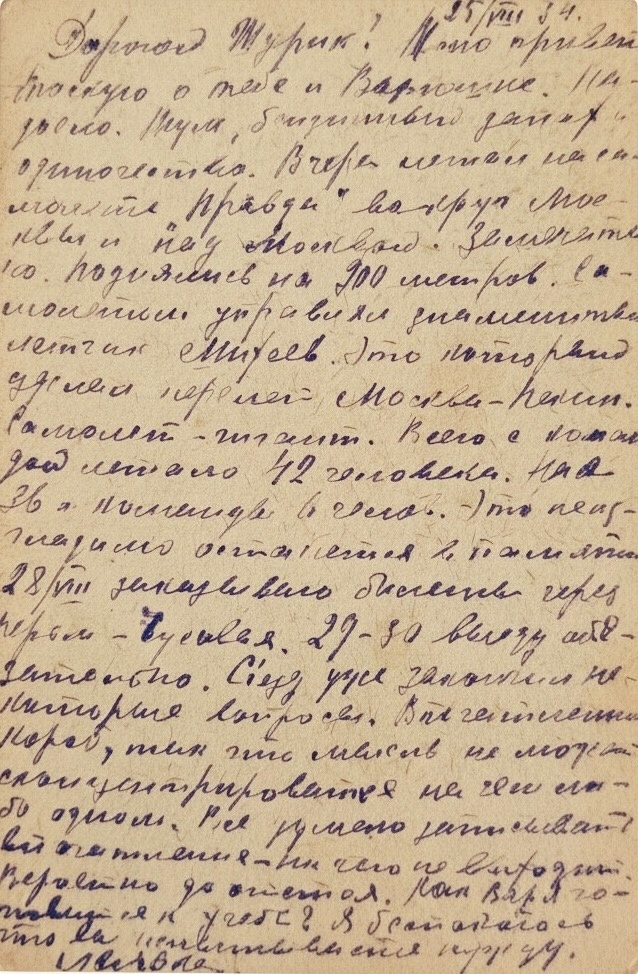 25/VIII 34.
Дорогой Шурик! Шлю привет
тоскую о тебе и Варюшке. На-
доело. Шум, бензинный запах и
одиночество. Вчера летал на са-
молете "Правда" вокруг Мос-
квы и над Москвой. Замечатель
но. Поднялись на 900 метров. Са-
молетом управлял знаменитый
летчик Михеев. Это который
сделал перелет Москва-Пекин.
Самолет-гигант. Всего с коман
дой летало 42 человека. Нас
36 и команды 6 челов. Это неиз-
гладимо останется в памяти
28/VIII заказываю билеты через
Пермь - Чусовая. 29-30 выеду обя-
зательно. Съезд уже закончил не-
которые вопросы. Впечатлений
короб, так что мысль не может
сконцентрироваться на чем ли-
бо одном. Все думаю записывать
впечатления - ни чего не выходит.
Вероятно до отъезда. Как Варя го-
товится к учебе? Я беспокоюсь
что ва испытываете нужду.